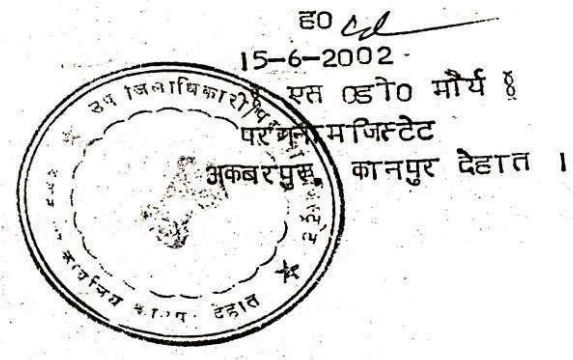 ह0
15-6-2002
§ एस 0डी0 मौर्य §
परगना मजिस्टेट
अकबरपुर, कानपुर देहात ।
उप जिलाधिकारी
देहात